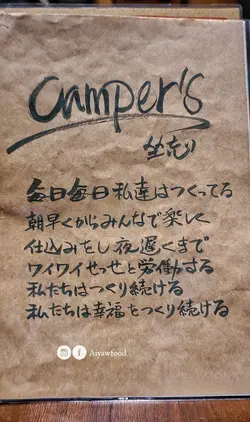 camper's
坐忘
毎日毎日私達はつくってる
朝早くからみんなで楽しく
仕込みをし夜遅くまで
ワイワイせっせと労働する
私たちはつくり続ける
私たちは幸福をつくり続ける
Aiyawfood